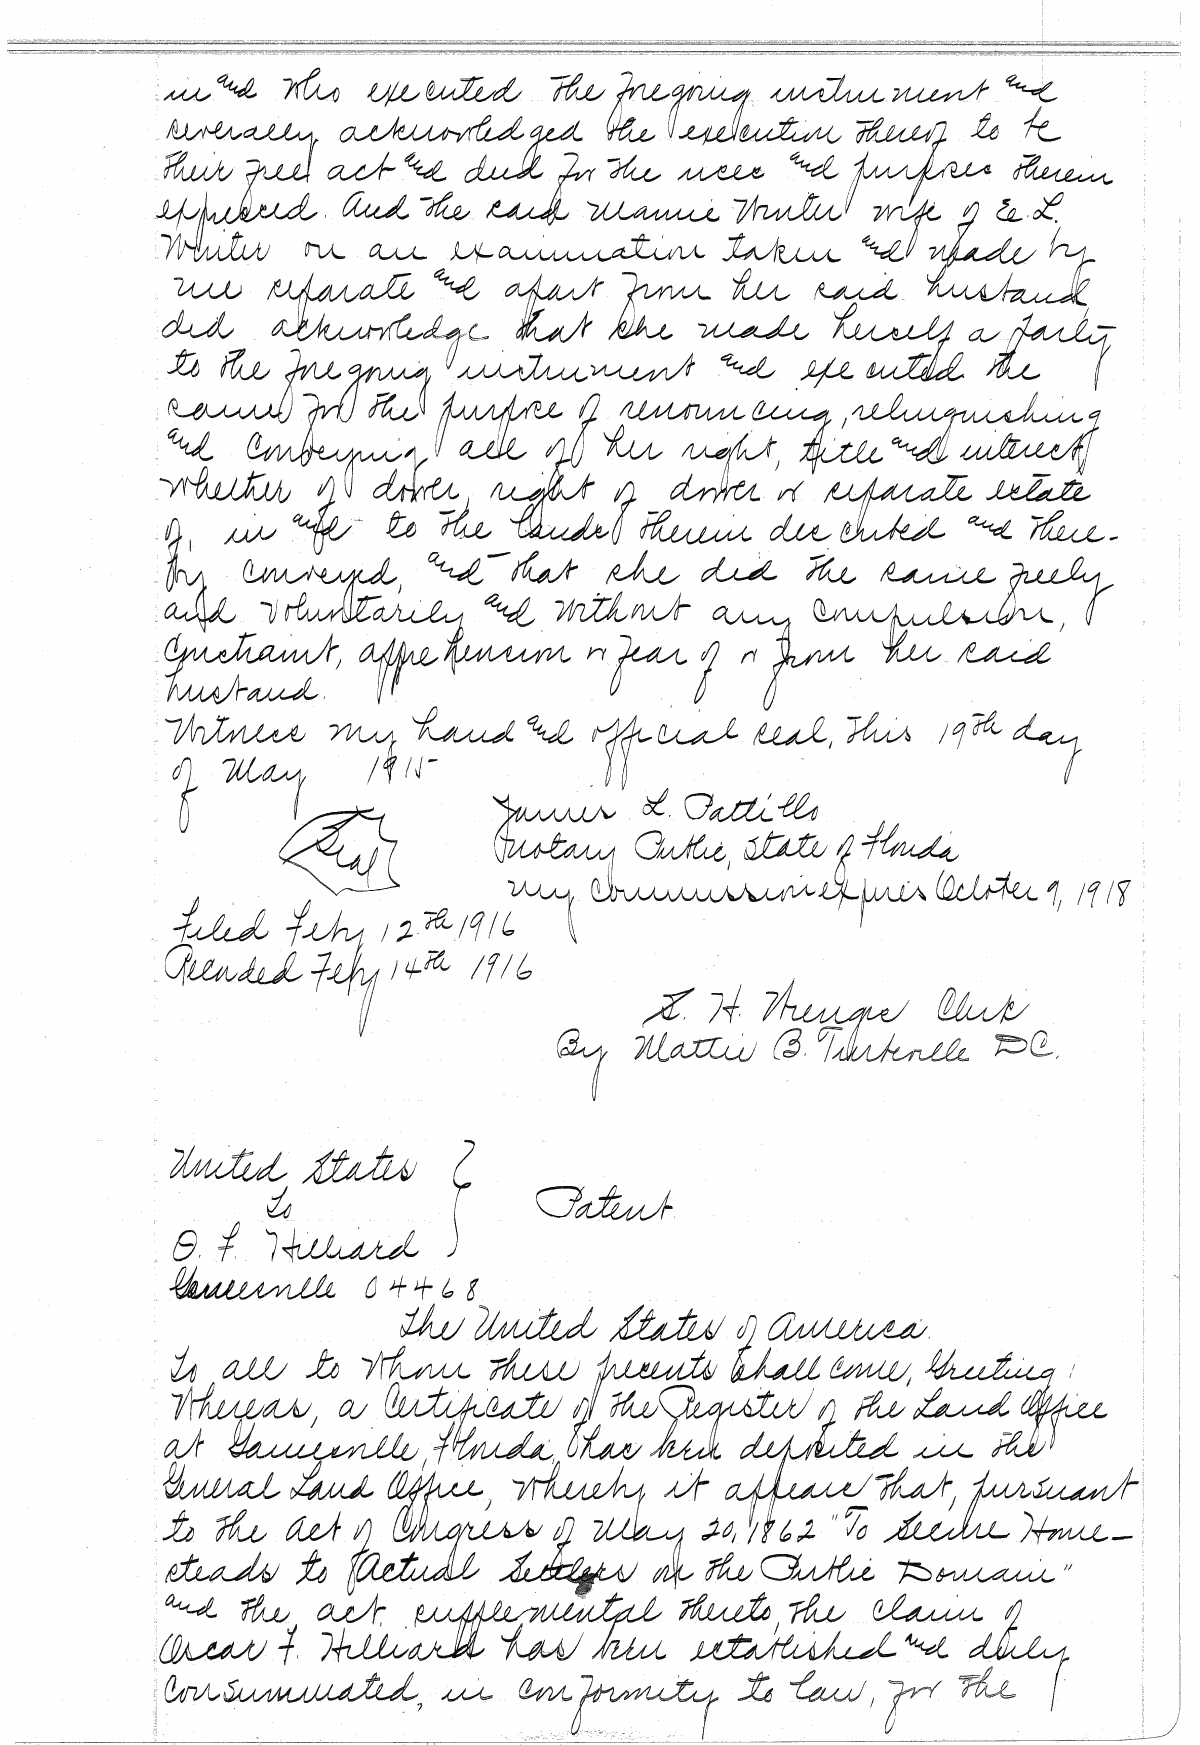 in and who executed the foregoing instrument and
severally acknowledged the execution thereof to be
their free act and deed for the uses and purposes therein
expressed. And the said Mamie Winter wife of E. L.
Winter on an examination taken and made by
me separate and apart from her said husband
did acknowledge that she made herself a party
to the foregoing instrument and executed the
same for the purpose of renouncing, relinquishing
and conveying all of her right, title and interest
whether of dower, right of dower or separate estate
of, in and to the lands therein described and there-
by conveyed, and that she did the same freely
and voluntarily and without any compulsion,
constraint, apprehension or fear of or from her said
husband.
Witness my hand and official seal, this 19th day
of May 1915
James L. Pattillo
Seal
Notary Public, State of Florida
My commission expires October 9, 1918
Filed Feby 12th 1916
Recorded Feby 14th 1916
S. H. Clerk
By Mattie B. DC.
United States
To
Patent
O. F. Hilliard
Gainesville 04468
The United States of America
To all to whom these presents shall come, Greeting:
Whereas, a Certificate of the Register of the Land Office
at Gainesville, Florida, has been deposited in the
General Land Office, whereby it appears that, pursuant
to the Act of Congress of May 20, 1862 "To Secure Home-
steads to Actual Settlers on the Public Domain"
and the act supplemental thereto, the claim of
Oscar F. Hilliard has been established and duly
consummated, in conformity to law, for the